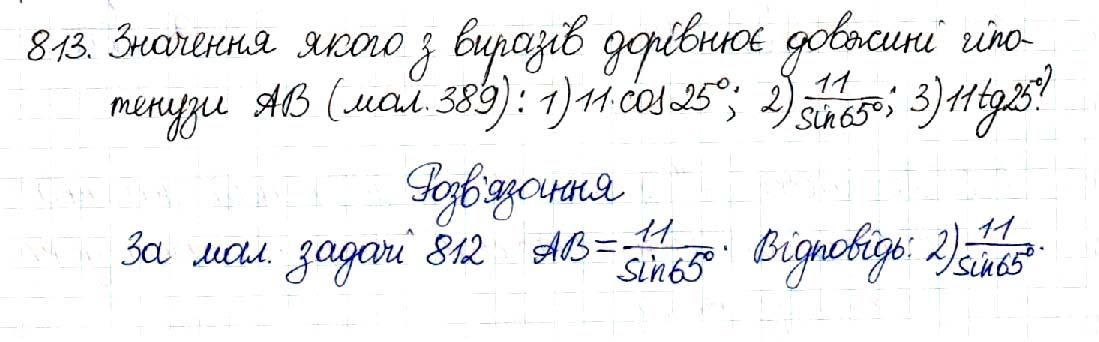 813. Значення якого з виразів дорівнює довжині гіпо-
тенузи AB (мал. 389) : 1) 11·cos25°; 2) 11/sin65°; 3) 11tg25°?
Розв'язання
За мал. задачі 812 AB = 11/sin65°. Відповідь: 2) 11/sin65°.